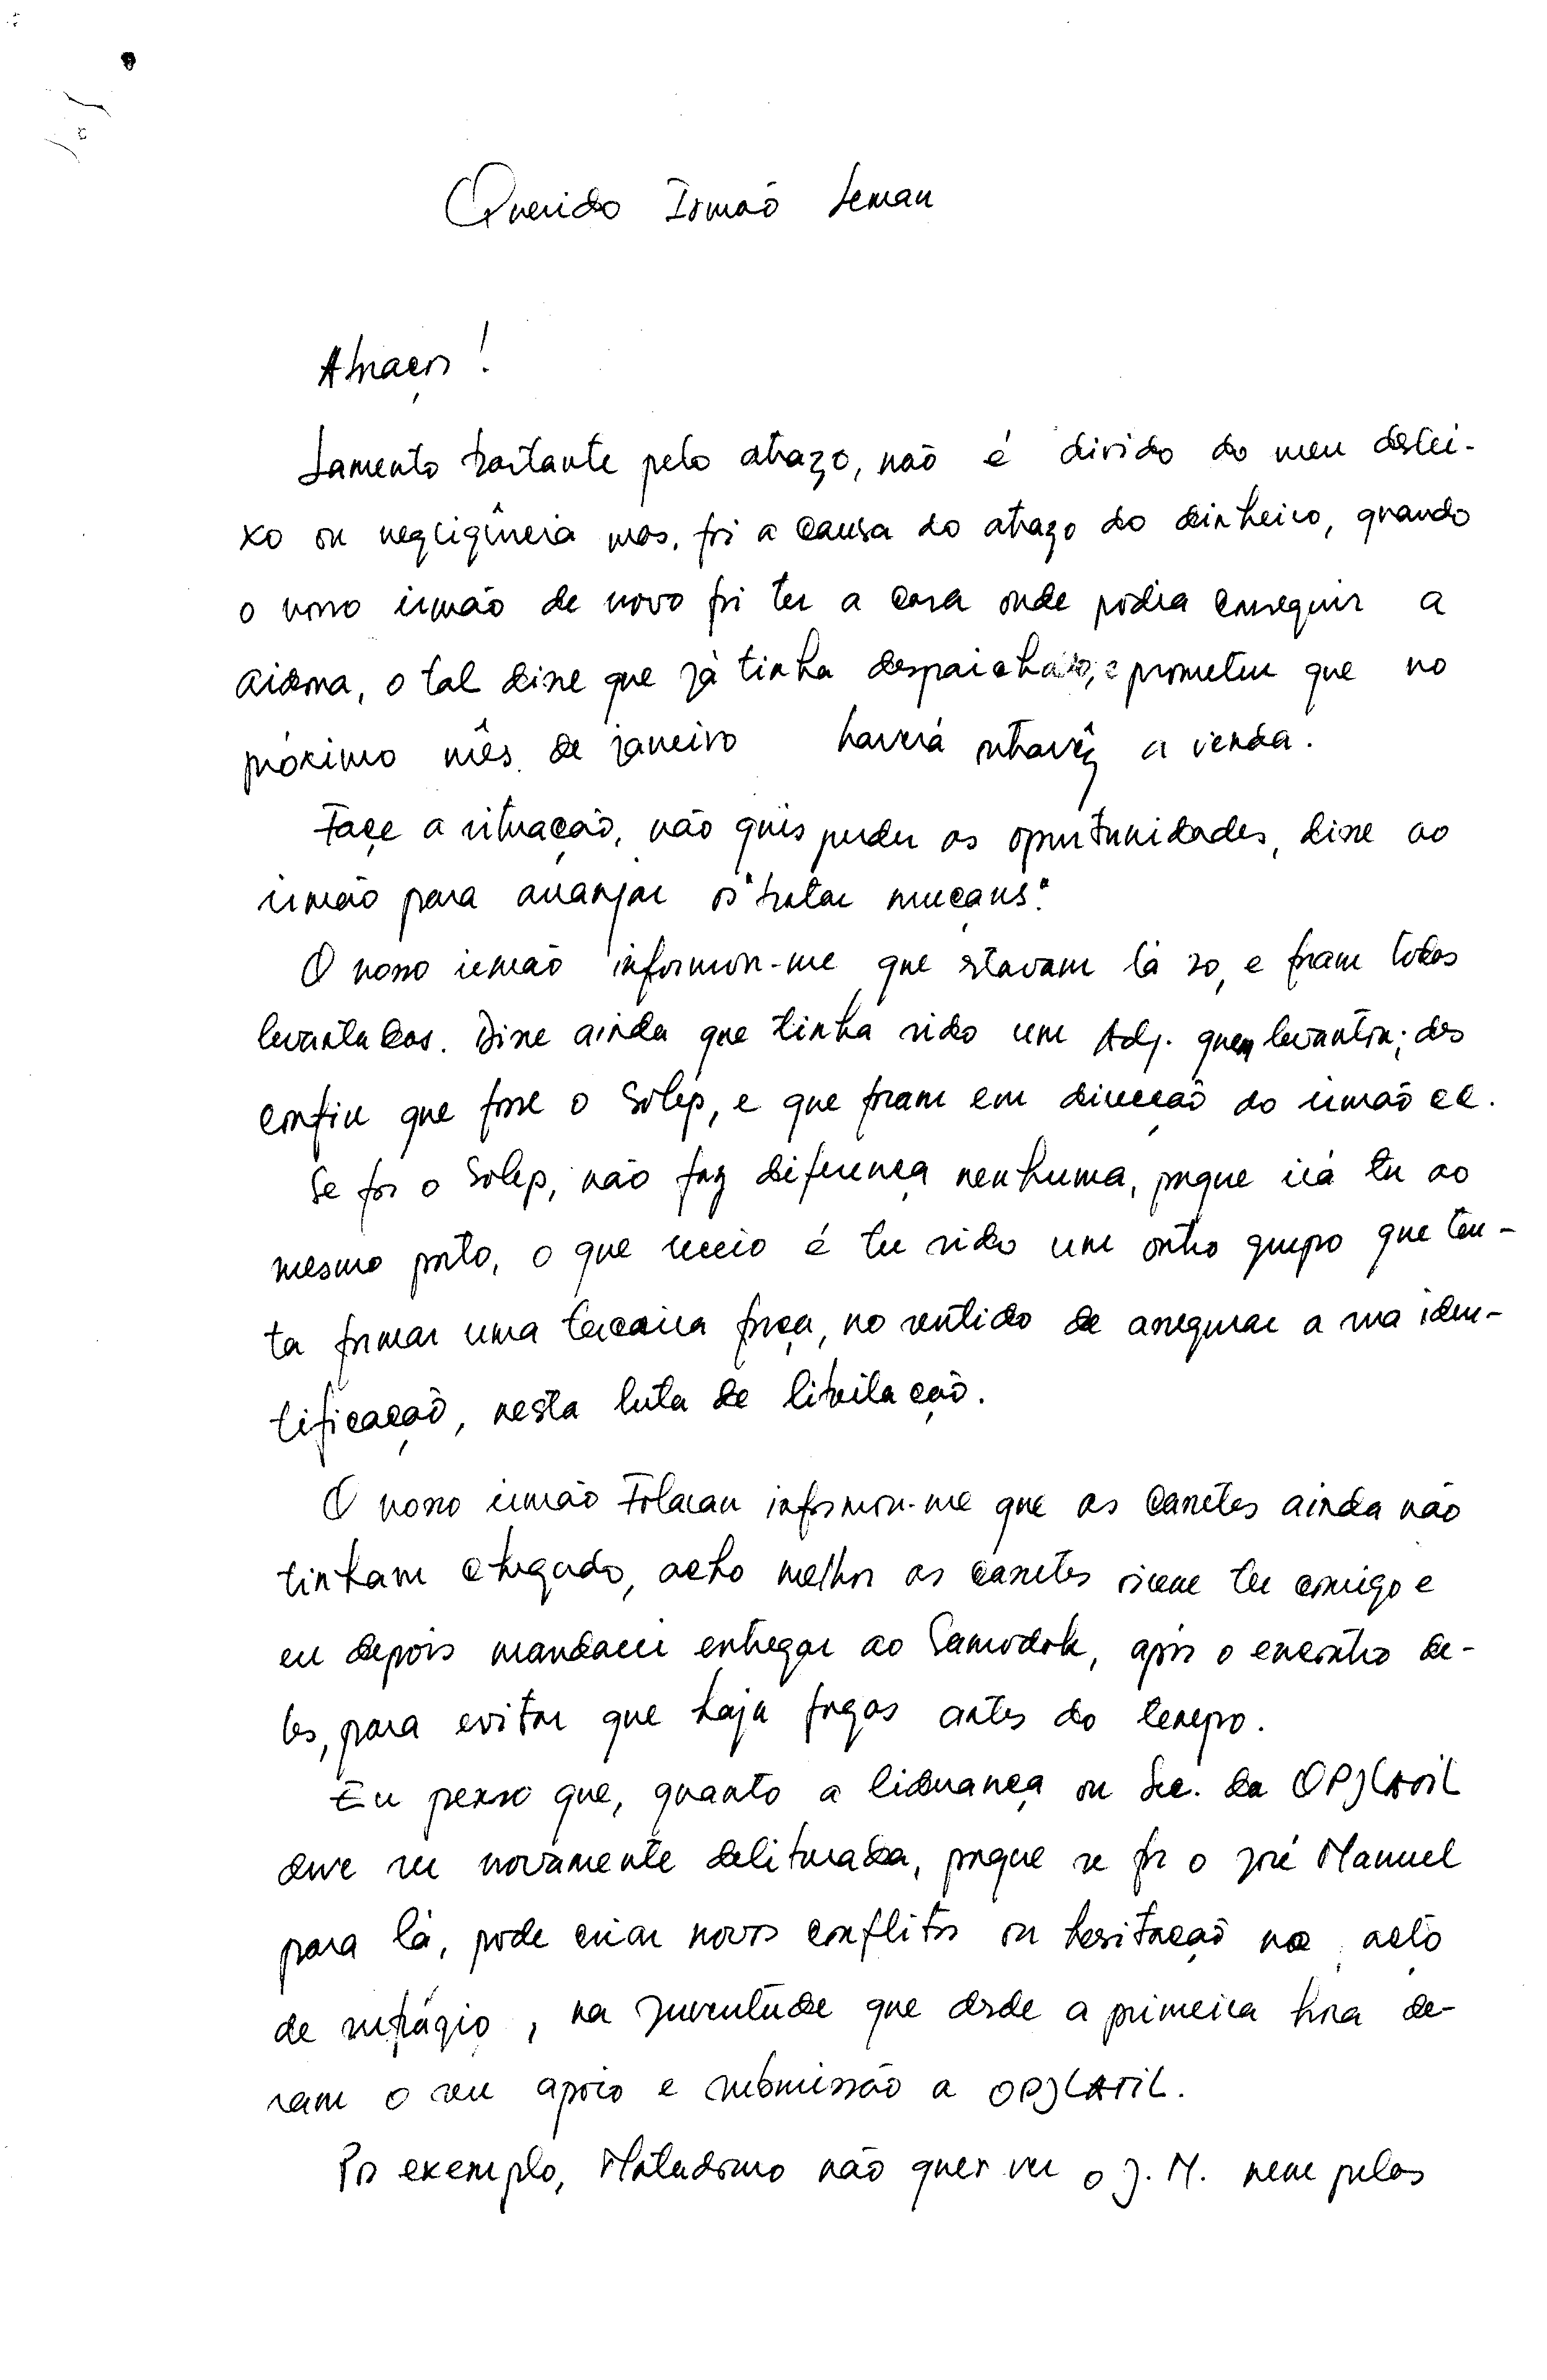 Querido Irmão Leman
Abraços!
Lamento bastante pelo atrazo, não é divido do meu deslei-
xo ou negligência mas, foi a causa do atrazo do dinheiro, quando
o nosso irmão de novo foi ter a casa onde podia conseguir a
aidona, o tal disse que já tinha despaichado, e prometeu que no
próximo mês de janeiro haverá outravêz a venda.
Façe a situação, não quis perder as oportunidades, disse ao
irmão para arranjar os "botar muçans".
O nosso irmão informou-me que estavam lá 20, e foram todos
levantados. Disse ainda que tinha sido um Adj. quem levantou; des
confiu que fosse o Solep, e que foram em direcção do irmão CC.
Se for o Solep, não faz diferença nenhuma, porque irá ter ao
mesmo porto, o que receio é ter sido um outro grupo que ten-
ta formar uma terceira força, no sentido de assegurar a sua iden-
tificação, nesta luta de libritação.
O nosso irmão Folaran informou-me que as cassetes ainda não
tinham chegado, acho melhor as cassetes virem ter comigo e
eu depois mandarei entregar ao Samodok, após o encontro de-
les, para evitar que haja fugas antes do tempo.
Eu penso que, quanto a liderança ou Sec. da OPJLATIL
deve ser novamente deliberada, porque se for o José Manuel
para lá, pode criar novos conflitos ou hesitação no acto
de sufrágio, na juventude que desde a primeira hora de-
ram o seu apoio e submissão a OPJLATIL.
Por exemplo, Matadomo não quer ver o J. M. nem pelos